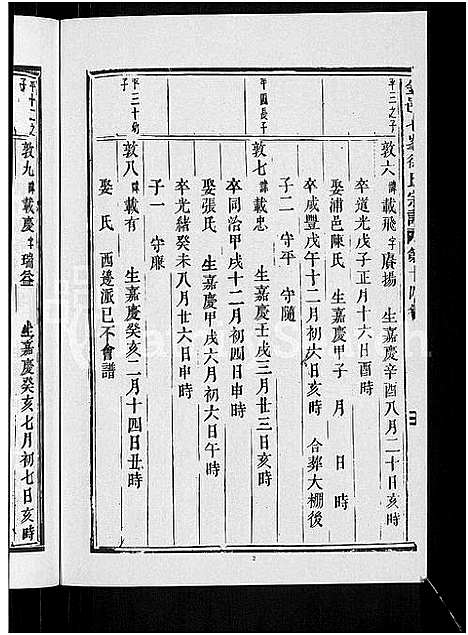 平三之子
敦六 諱載飛字賡揚 生嘉慶辛酉八月二十日亥時
卒道光戊子正月十六日酉時
娶浦邑陳氏 生嘉慶甲子 月 日 時
卒咸豐戊午十二月初六日亥時 合葬大棚後
子二 守平 守隨
平四長子
敦七 諱載忠 生嘉慶壬戌三月廿三日亥時
卒同治甲戌十二月初四日申時
娶張氏 生嘉慶甲戌六月初六日午時
卒光緒癸未八月廿六日申時
子一 守廉
平三十幼子
敦八 諱載有 生嘉慶癸亥二月十四日丑時
娶 氏 西邊派已不會譜
平十二之子
敦九 諱載慶字瑞益 生嘉慶癸亥七月初七日亥時
2